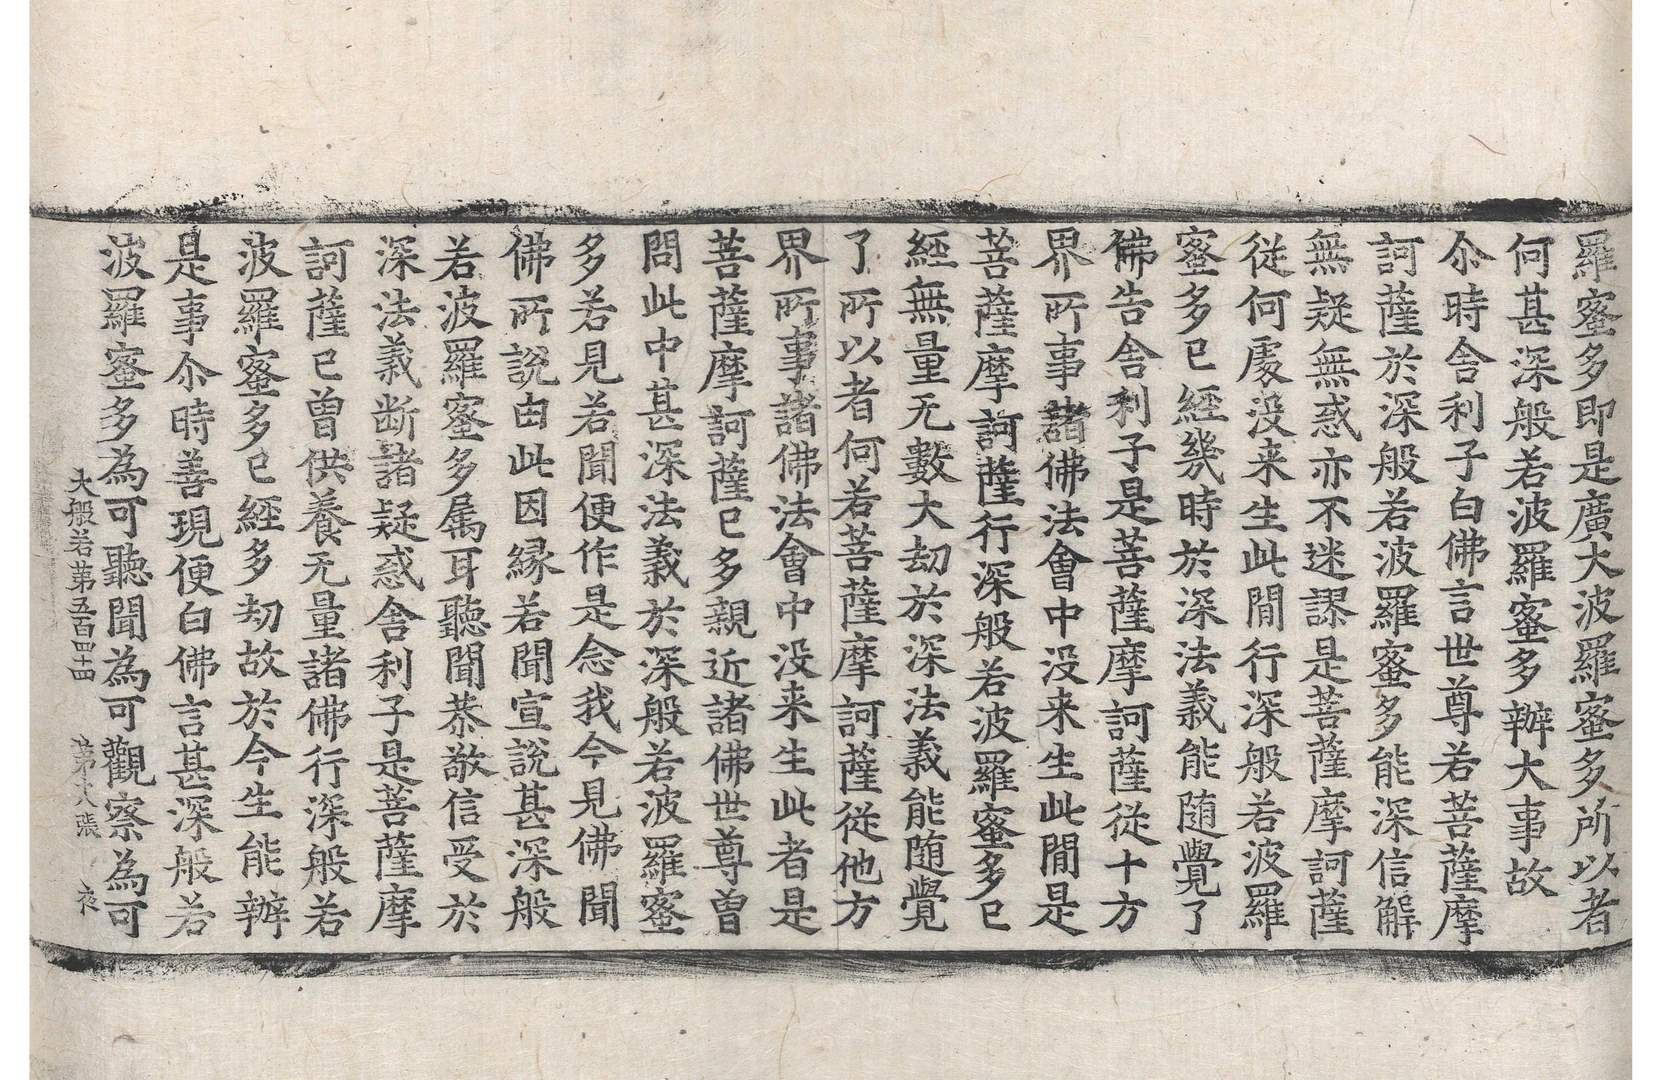 羅蜜多即是廣大波羅蜜多所以者
何甚深般若波羅蜜多辦大事故
尒時舍利子白佛言世尊若菩薩摩
訶薩於深般若波羅蜜多能深信解
無疑無惑亦不迷謬是菩薩摩訶薩
從何處没来生此閒行深般若波羅
蜜多已經幾時於深法義能随覺了
佛告舍利子是菩薩摩訶薩從十方
界所事諸佛法會中没来生此閒是
菩薩摩訶薩行深般若波羅蜜多已
經無量无數大劫於深法義能随覺
了所以者何若菩薩摩訶薩從他方
界所事諸佛法會中没来生此者是
菩薩摩訶薩已多親近諸佛世尊曽
問此中甚深法義於深般若波羅蜜
多若見若聞便作是念我今見佛聞
佛所說由此因縁若聞宣說甚深般
若波羅蜜多属耳聽聞恭敬信受於
深法義断諸疑惑舍利子是菩薩摩
訶薩已曽供養无量諸佛行深般若
波羅蜜多已經多劫故於今生能辦
是事尒時善現便白佛言甚深般若
波羅蜜多為可聽聞為可觀察為可
大般若第五百四十四 第十八張 夜